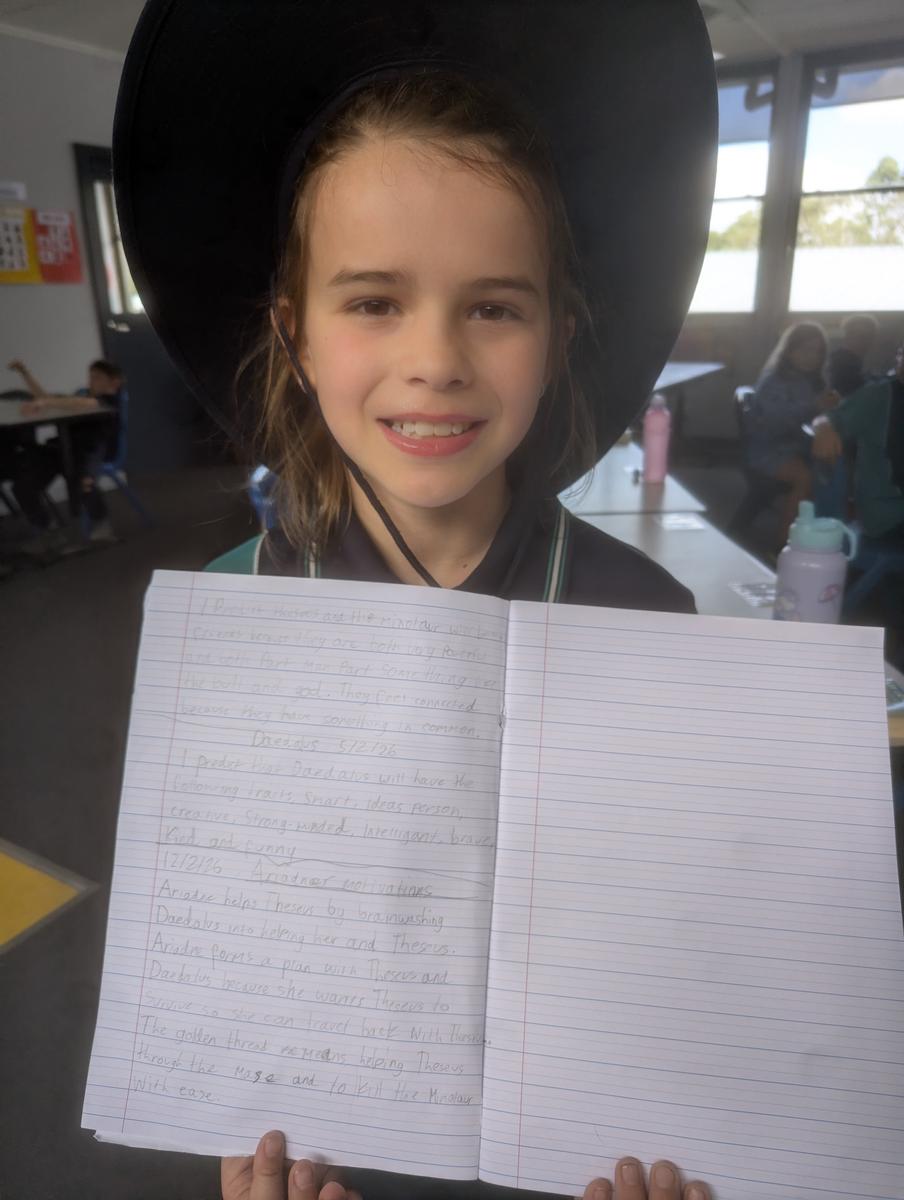 I Predict theseus and the minotaur will be
because they are both very Powerful
and both Part man Part something
the bull and god. They feel connected
because they have somthing in common.
Daedalus 5/2/26
I predict that Daedalus will have the
following traits, Smart, ideas person,
creative, Strong-minded, Intelligant, brave,
Kind, and funny
12/2/26 motivatines
Ariadne helps Theseus by brainwashing
Daedalus into helping her and Theseus.
Ariadne forms a plan with Theseus and
Daedalus because she wants Theseus to
survive so she can travel back with Theseus.
The golden thread means helping Theseus
through the maze and to kill the Minotaur
With ease.